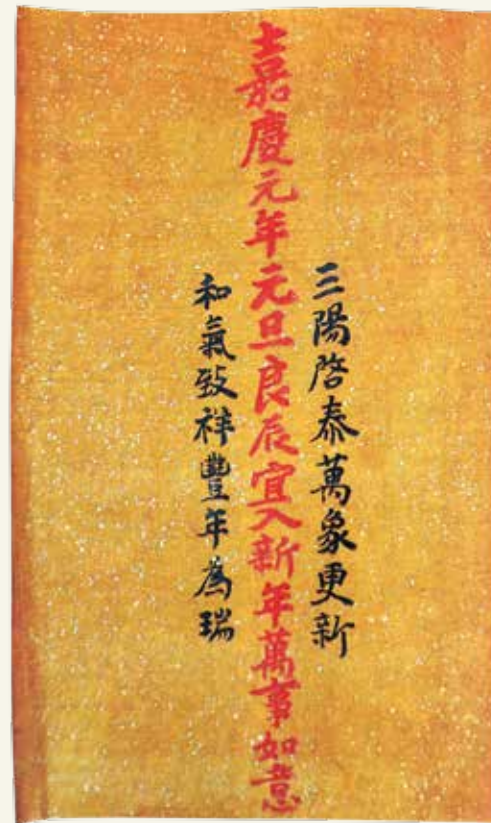 三陽啓泰萬象更新
嘉慶元年元旦良辰宜入新年萬事如意
和氣致祥豐年為瑞